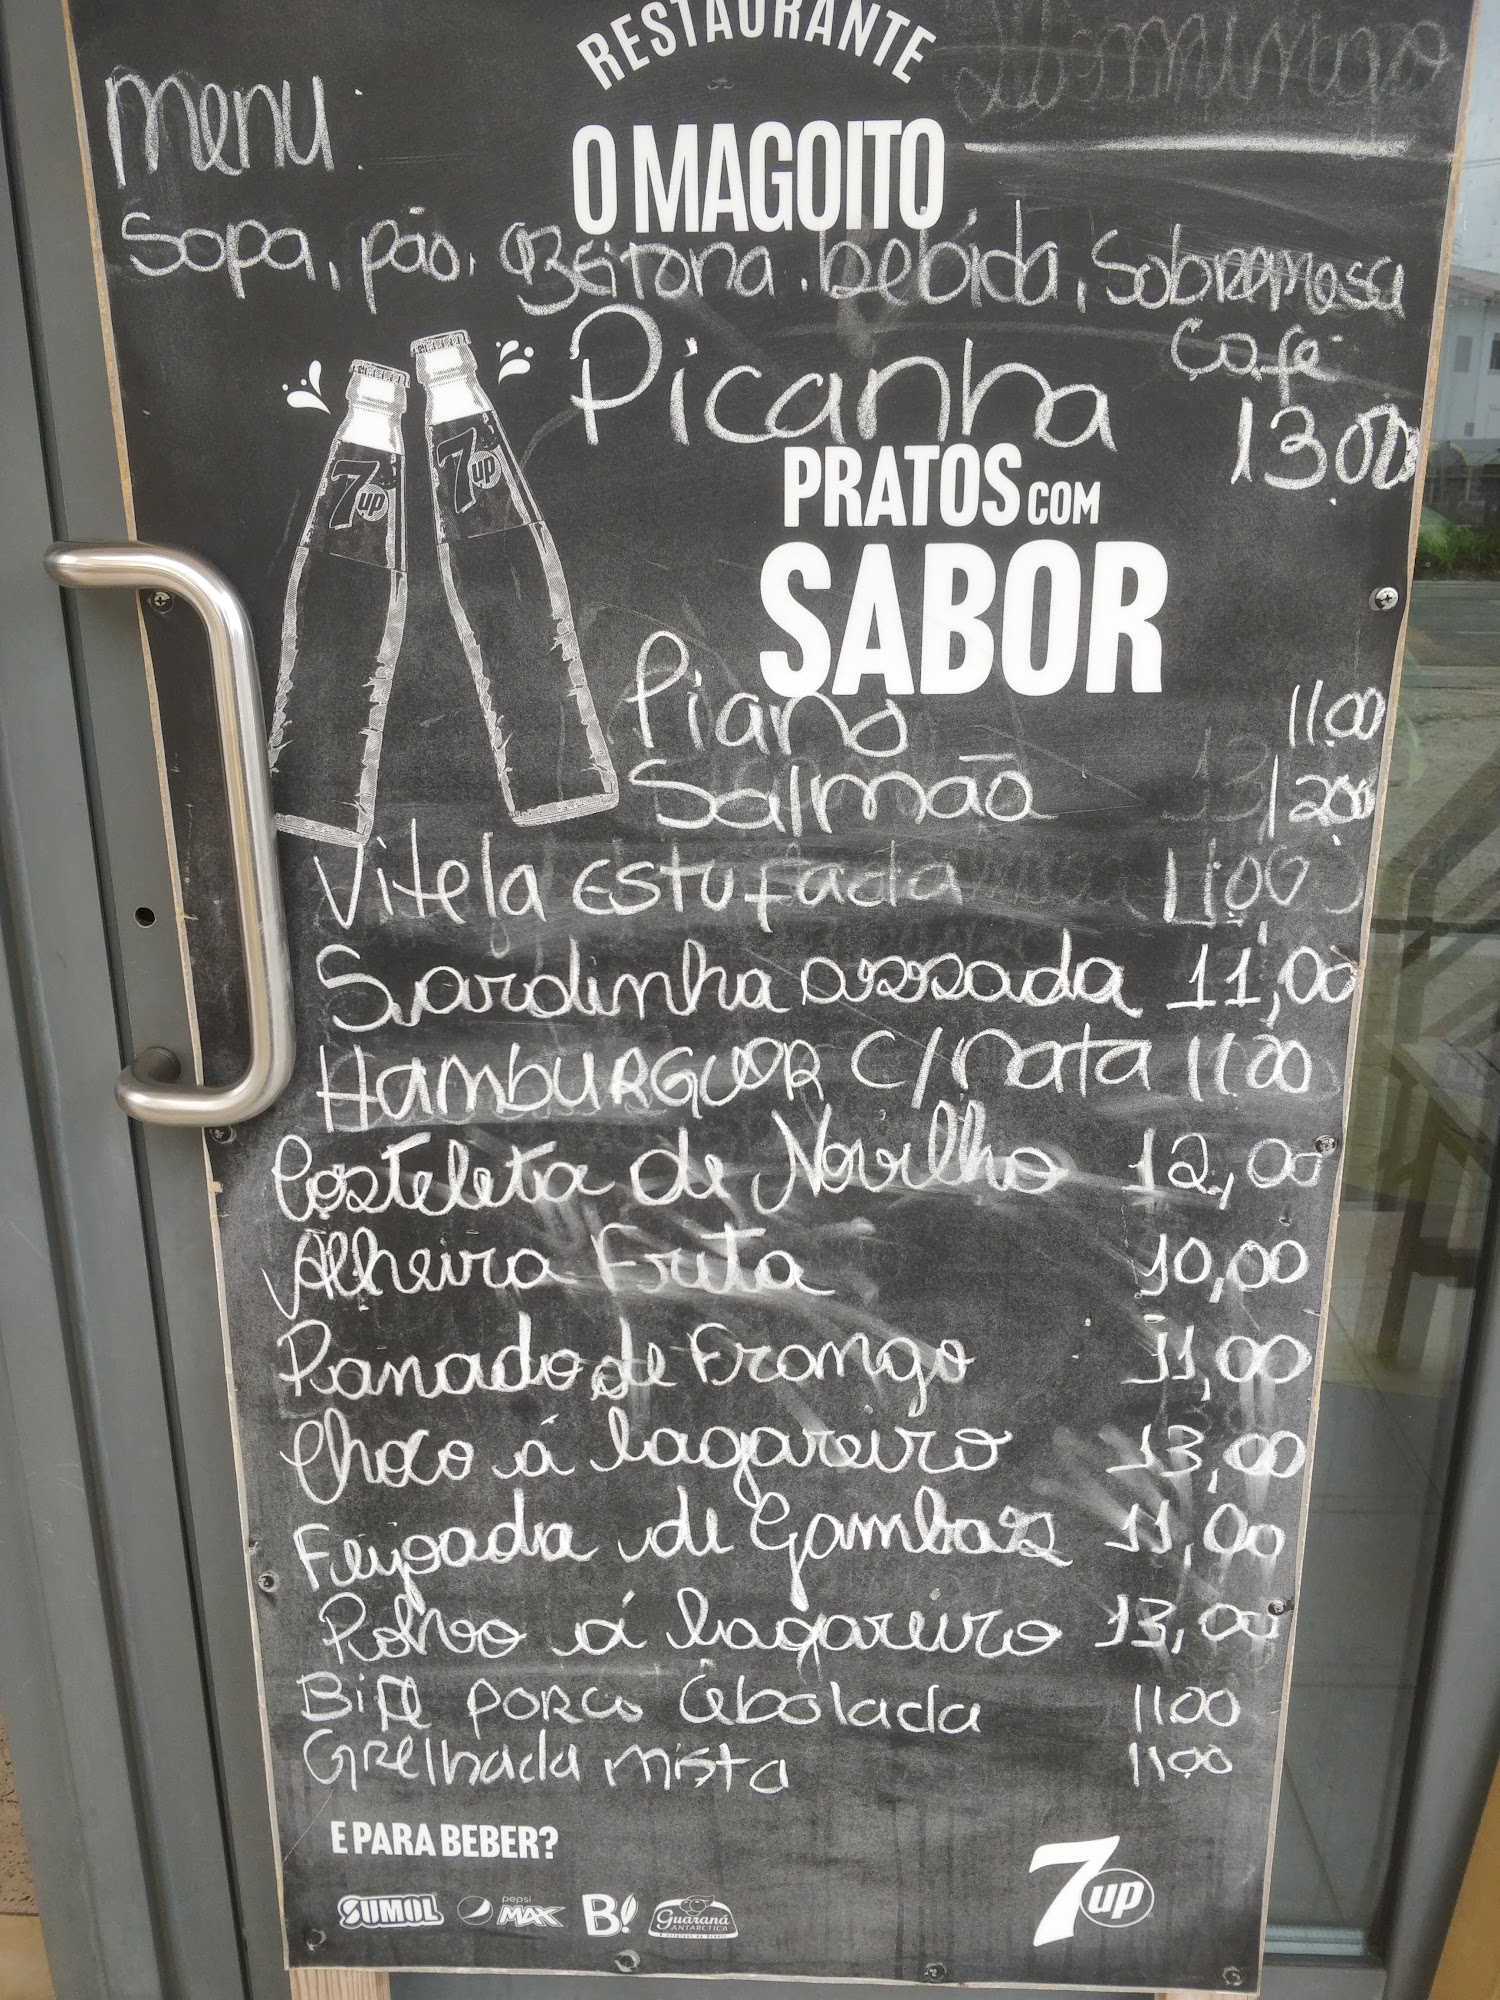 RESTAURANTE
O MAGOITO
Domingo
Menu:
Sopa, pão, azeitona, bebida, sobremesa
café
Picanha 13.00
PRATOS COM
SABOR
Piano 11.00
Salmão 12.00
Vitela Estufada 11.00
Sardinha assada 11,00
HAMBURGUER C/nata 11.00
Costeleta de Novilho 12,00
Alheira Frita 10,00
Panado de Frango 11,00
Choco á lagareiro 13,00
Feijoada de Gambas 11,00
Polvo á lagareiro 13,00
Bife porco Cebolada 11.00
Grelhada mista 11.00
7up
7up
E PARA BEBER?
SUMOL pepsi MAX B! Guaraná ANTARCTICA
7up